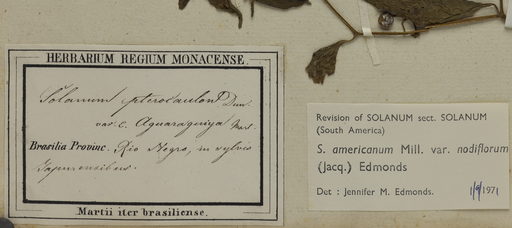 HERBARIUM REGIUM MONACENSE.
Solanum pterocaulon Dun.
var. c. Aquaraquiya Mart.
Brasilia Provinc. Rio Negro, in sylvis
Japurensibus.
Martii iter brasiliense.
Revision of SOLANUM sect. SOLANUM
(South America)
S. americanum Mill. var. nodiflorum
(Jacq.) Edmonds
Det : Jennifer M. Edmonds. 1/9/1971